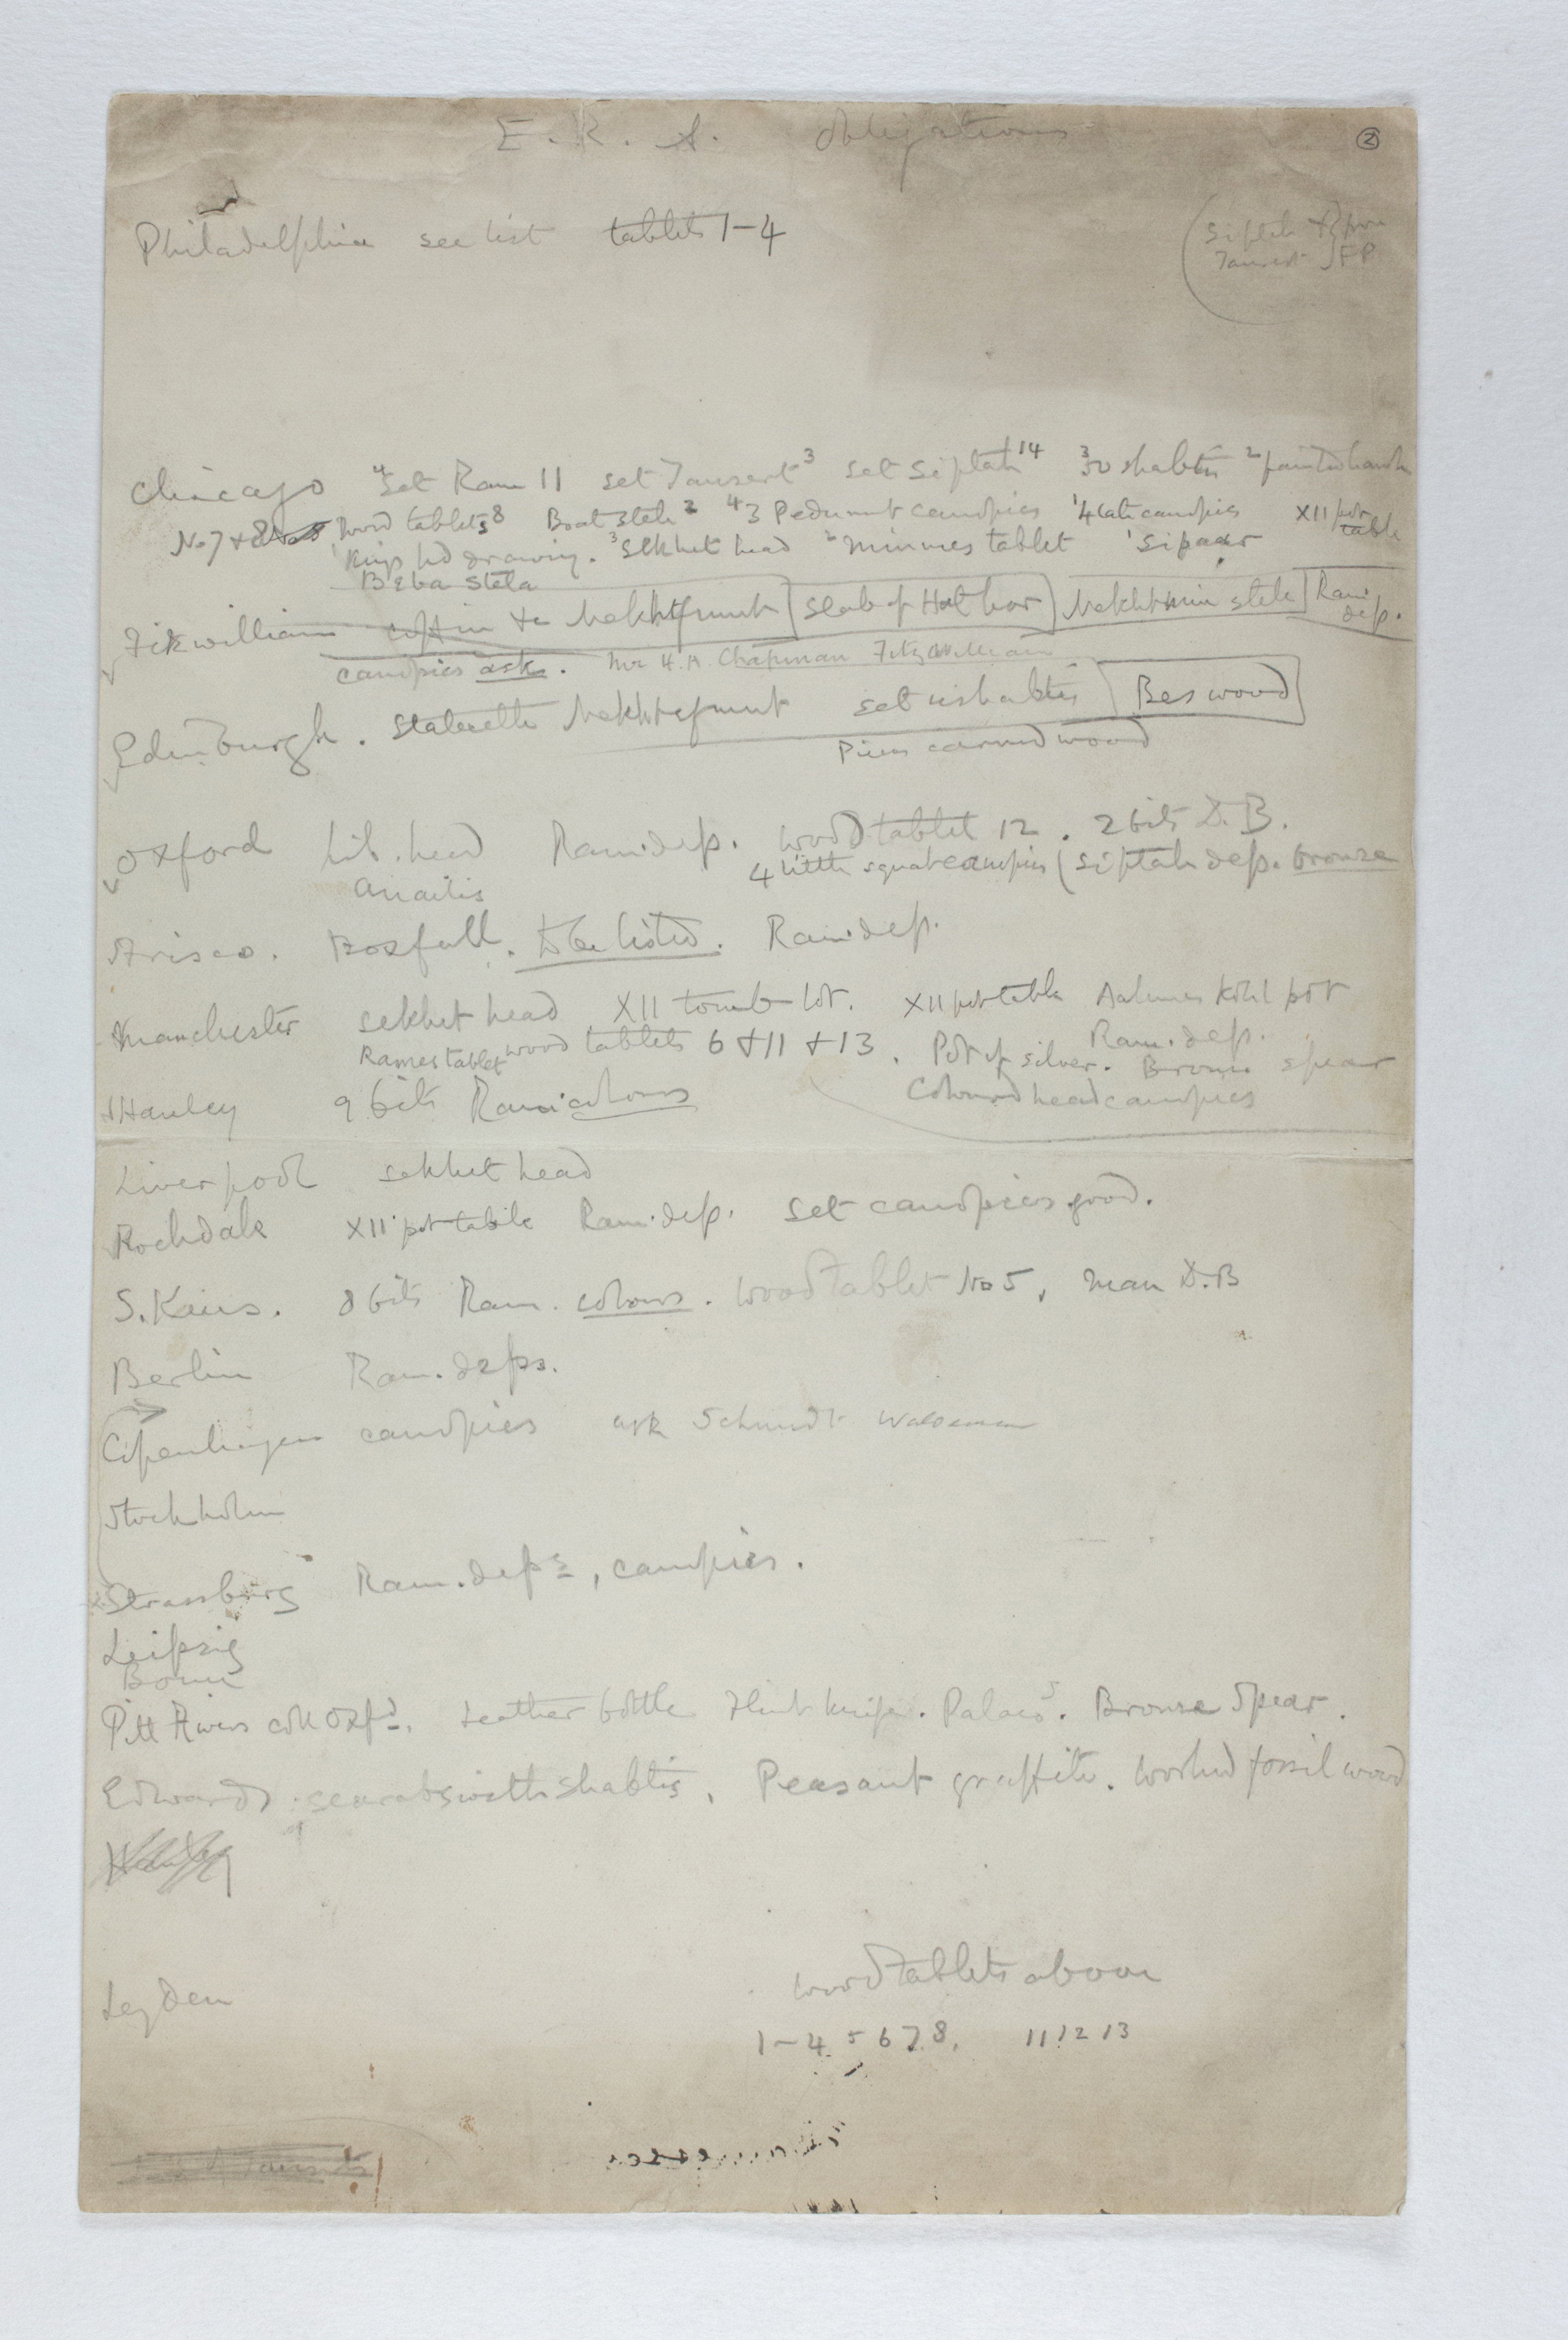 E. R. A. obligations
②
Philadelphia see list tablets 1-4
(Siptah &
Tausert FP
Chicago 4 set Ram II set Tausert 3 set Siptah 14 3 50 shabtis 2 painted heads
No 7 + 8 wood tablets 8 Boat stele 2 4 3 Pedununt canopics 1 4 late canopics XII pot table
1 Kings hd drawing. 3 Sekhet head 2 Minmes tablet 1 Sipaar
Beba Stela
Fitzwilliam coffin Nekhtefmut (slab of Hathor) Nekhtmin stele Ram. dep.
canopics ask. Mr H. A. Chapman Fitzwilliam
Edinburgh. Statuette Nekhtefmut set ushabtis Bes wood
Piece carved wood
Oxford head Ram. dep. wood tablet 12. 2 bits D. B.
anaitis 4 little squat canopics (Siptah dep. bronze
Box full. To be listed. Ram. dep.
Manchester sekhet head XII tomb lot. XII pot table Aahmes Kohl pot
Rames tablet wood tablets 6 + 11 + 13. Pot of silver. Ram. dep. Bronze spear
Hanley 9 bits Ram. colours Coloured head canopics
Liverpool sekhet head
Rochdale XII pot table Ram. dep. set canopics good.
S. Kens. 8 bits Ram. colours. Wood tablet No 5, man D. B
Berlin Ram. deps.
Copenhagen canopics ask Schmidt Waldemar
Stockholm
Strassburg Ram. deps, canopics.
Leipzig
Bonn
Pitt Rivers coll Oxfd. Leather bottle Flint knife. Palaeos. Bronze Spear.
Edwards. scarabs with shabtis, Peasant graffiti. Worked fossil wood
Leyden
wood tablets above
1-4. 5 6 7 8, 11 12 13